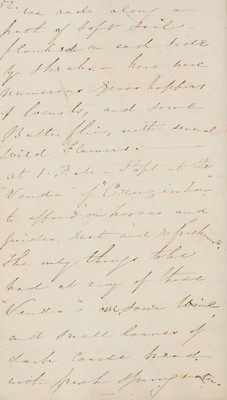 52.
we rode along a
path of soft soil
flanked on each side
by shrubs. - here were
numerous grass hoppers
& locusts, and some
Butterflies, with several
wild Flowers. -
at 1. P.M. Stopt at the
"Venda" of
to afford our horses and
guides, rest and refreshment.
The only things to be
had at any of these
"Vendas" are sour Wine
and small loaves of
dark coarse bread
with fresh spring water.